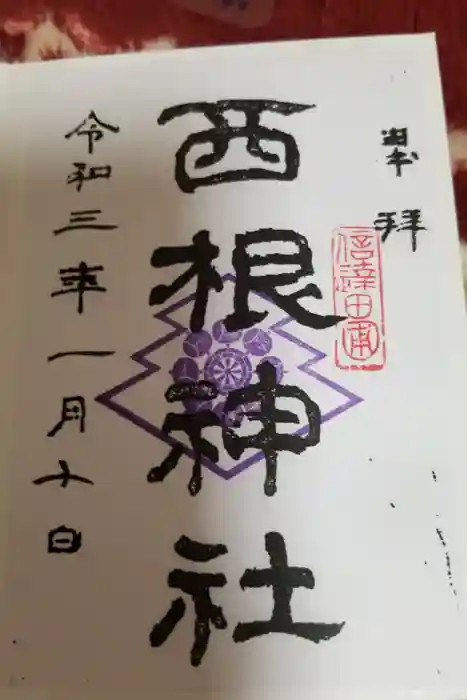 奉拝
信達田甫
西根神社
令和三年一月十日